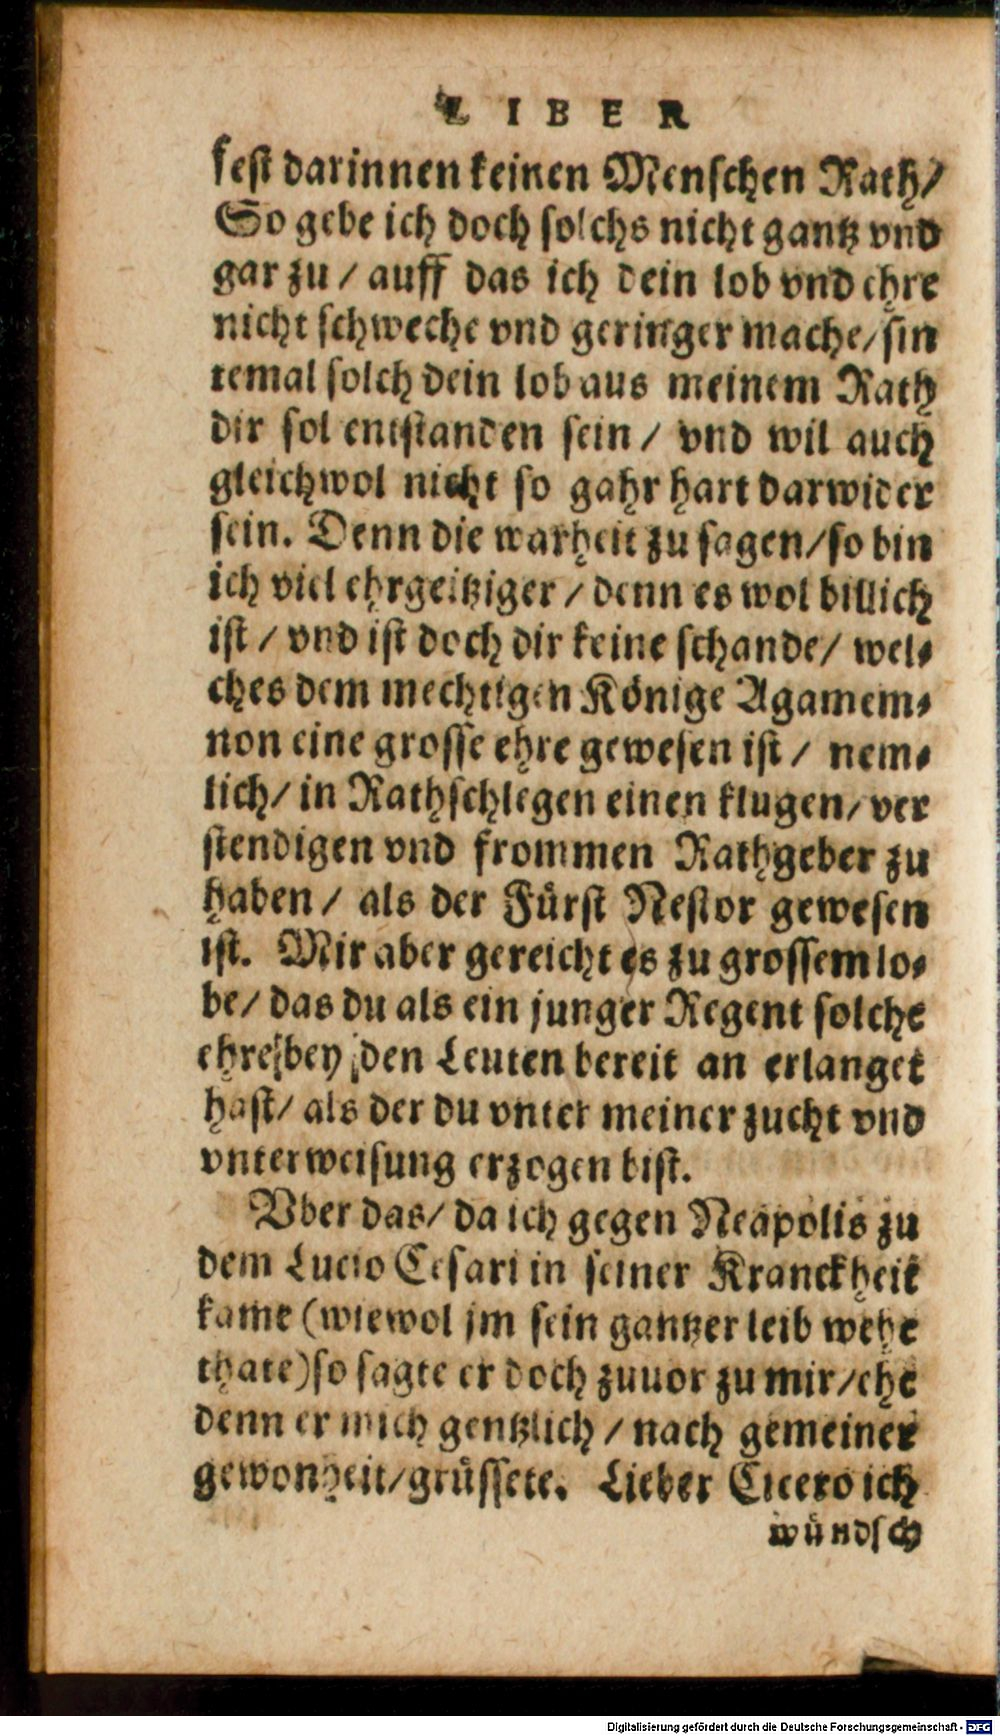 LIBER
fest darinnen keinen Menschen Rath/
So gebe ich doch solchs nicht gantz vnd
gar zu / auff das ich dein lob vnd ehre
nicht schweche vnd geringer mache/sin
temal solch dein lob aus meinem Rath
dir sol entstanden sein / vnd wil auch
gleichwol nicht so gahr hart darwider
sein. Denn die warheit zu sagen/so bin
ich viel ehrgeitziger / denn es wol billich
ist / vnd ist doch dir keine schande/ wel⸗
ches dem mechtigen Könige Agamem⸗
non eine grosse ehre gewesen ist / nem⸗
lich/ in Rathschlegen einen klugen/ ver
stendigen vnd frommen Rathgeber zu
haben / als der Fürst Nestor gewesen
ist. Mir aber gereicht es zu grossem lo⸗
be/ das du als ein junger Regent solche
ehre bey den Leuten bereit an erlanget
hast/ als der du vnter meiner zucht vnd
vnterweisung erzogen bist.
Vber das/ da ich gegen Neapolis zu
dem Lucio Cesari in seiner Kranckheit
kame (wiewol jm sein gantzer leib wehe
thate)so sagte er doch zuuor zu mir/ehe
denn er mich gentzlich / nach gemeiner
gewonheit/grüssete. Lieber Cicero ich
wündsch
Digitalisierung gefördert durch die Deutsche Forschungsgemeinschaft - DFG